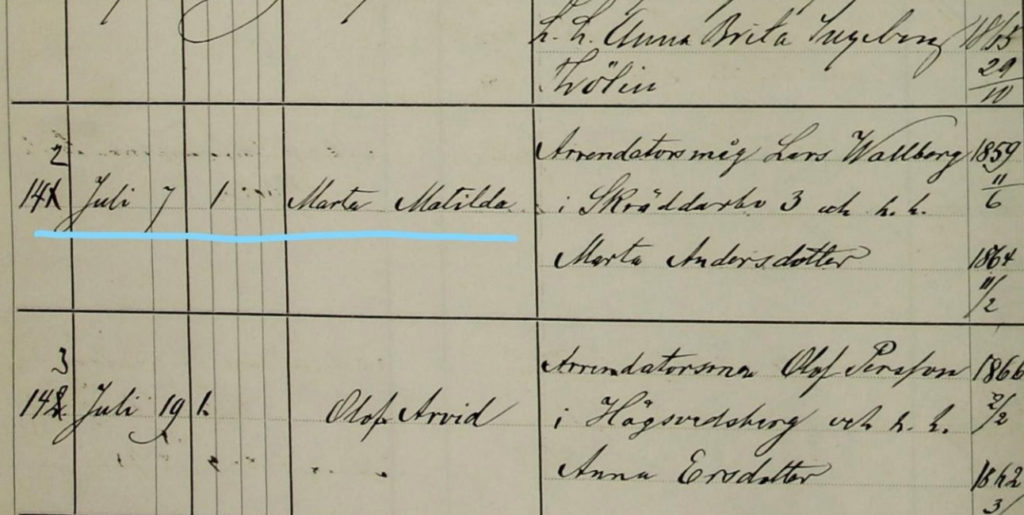 h. h. Anna Brita Ingeborg 18/15
Frölin 29/10
2
141 Juli 7 1 Marta Matilda
Arrendatorsmåg Lars Wallberg 1859
i Skräddarbo 3 och h. h. 11/6
Marta Andersdotter 1864
11/2
3
142 Juli 19 1. Olof Arvid
Arrendatorsman Olof Persson 1866
i Högsvedsberg och h. h. 2/2
Anna Ersdotter 1862
3/